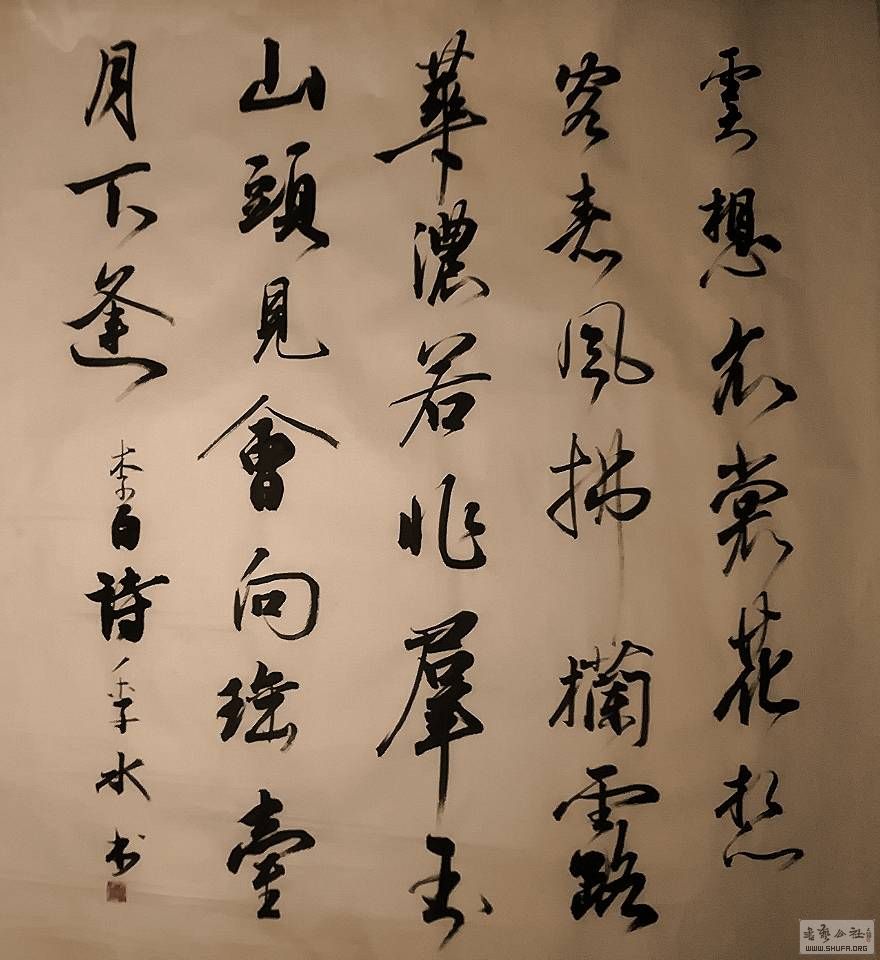 雲想衣裳花想
容春風拂欄露
華濃若非羣玉
山頭見會向瑤臺
月下逢 李白詩 季水书
書藝公社
WWW.SHUFA.ORG